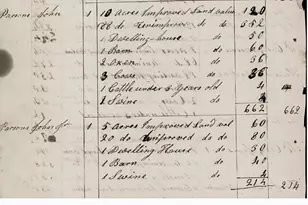 Parsons John 1 10 Acres Improved Land value 120
66 do Unimproved do do 552
1 Dwelling house do 50
1 Barn do 60
2 Oxen do 56
3 Cows do 36
1 Cattle under 4 years old 4
1 Swine do
662 662
Parsons John Jr 1 5 Acres Improved Land val 60
20 do Unimproved do do 80
1 Dwelling House do 50
1 Barn do 40
1 Swine do 4
214 214